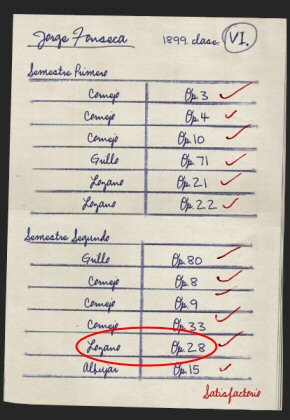 Jorge Fonseca 1899. clase. VI.
Semestre Primero
Cornejo Op. 3
Cornejo Op. 4
Cornejo Op. 10
Grillo Op. 71
Lozano Op. 21
Lozano Op. 22
Semestre Segundo
Grillo Op. 80
Cornejo Op. 8
Cornejo Op. 9
Cornejo Op. 33
Lozano Op. 28
Albujar Op. 15
Satisfactorio